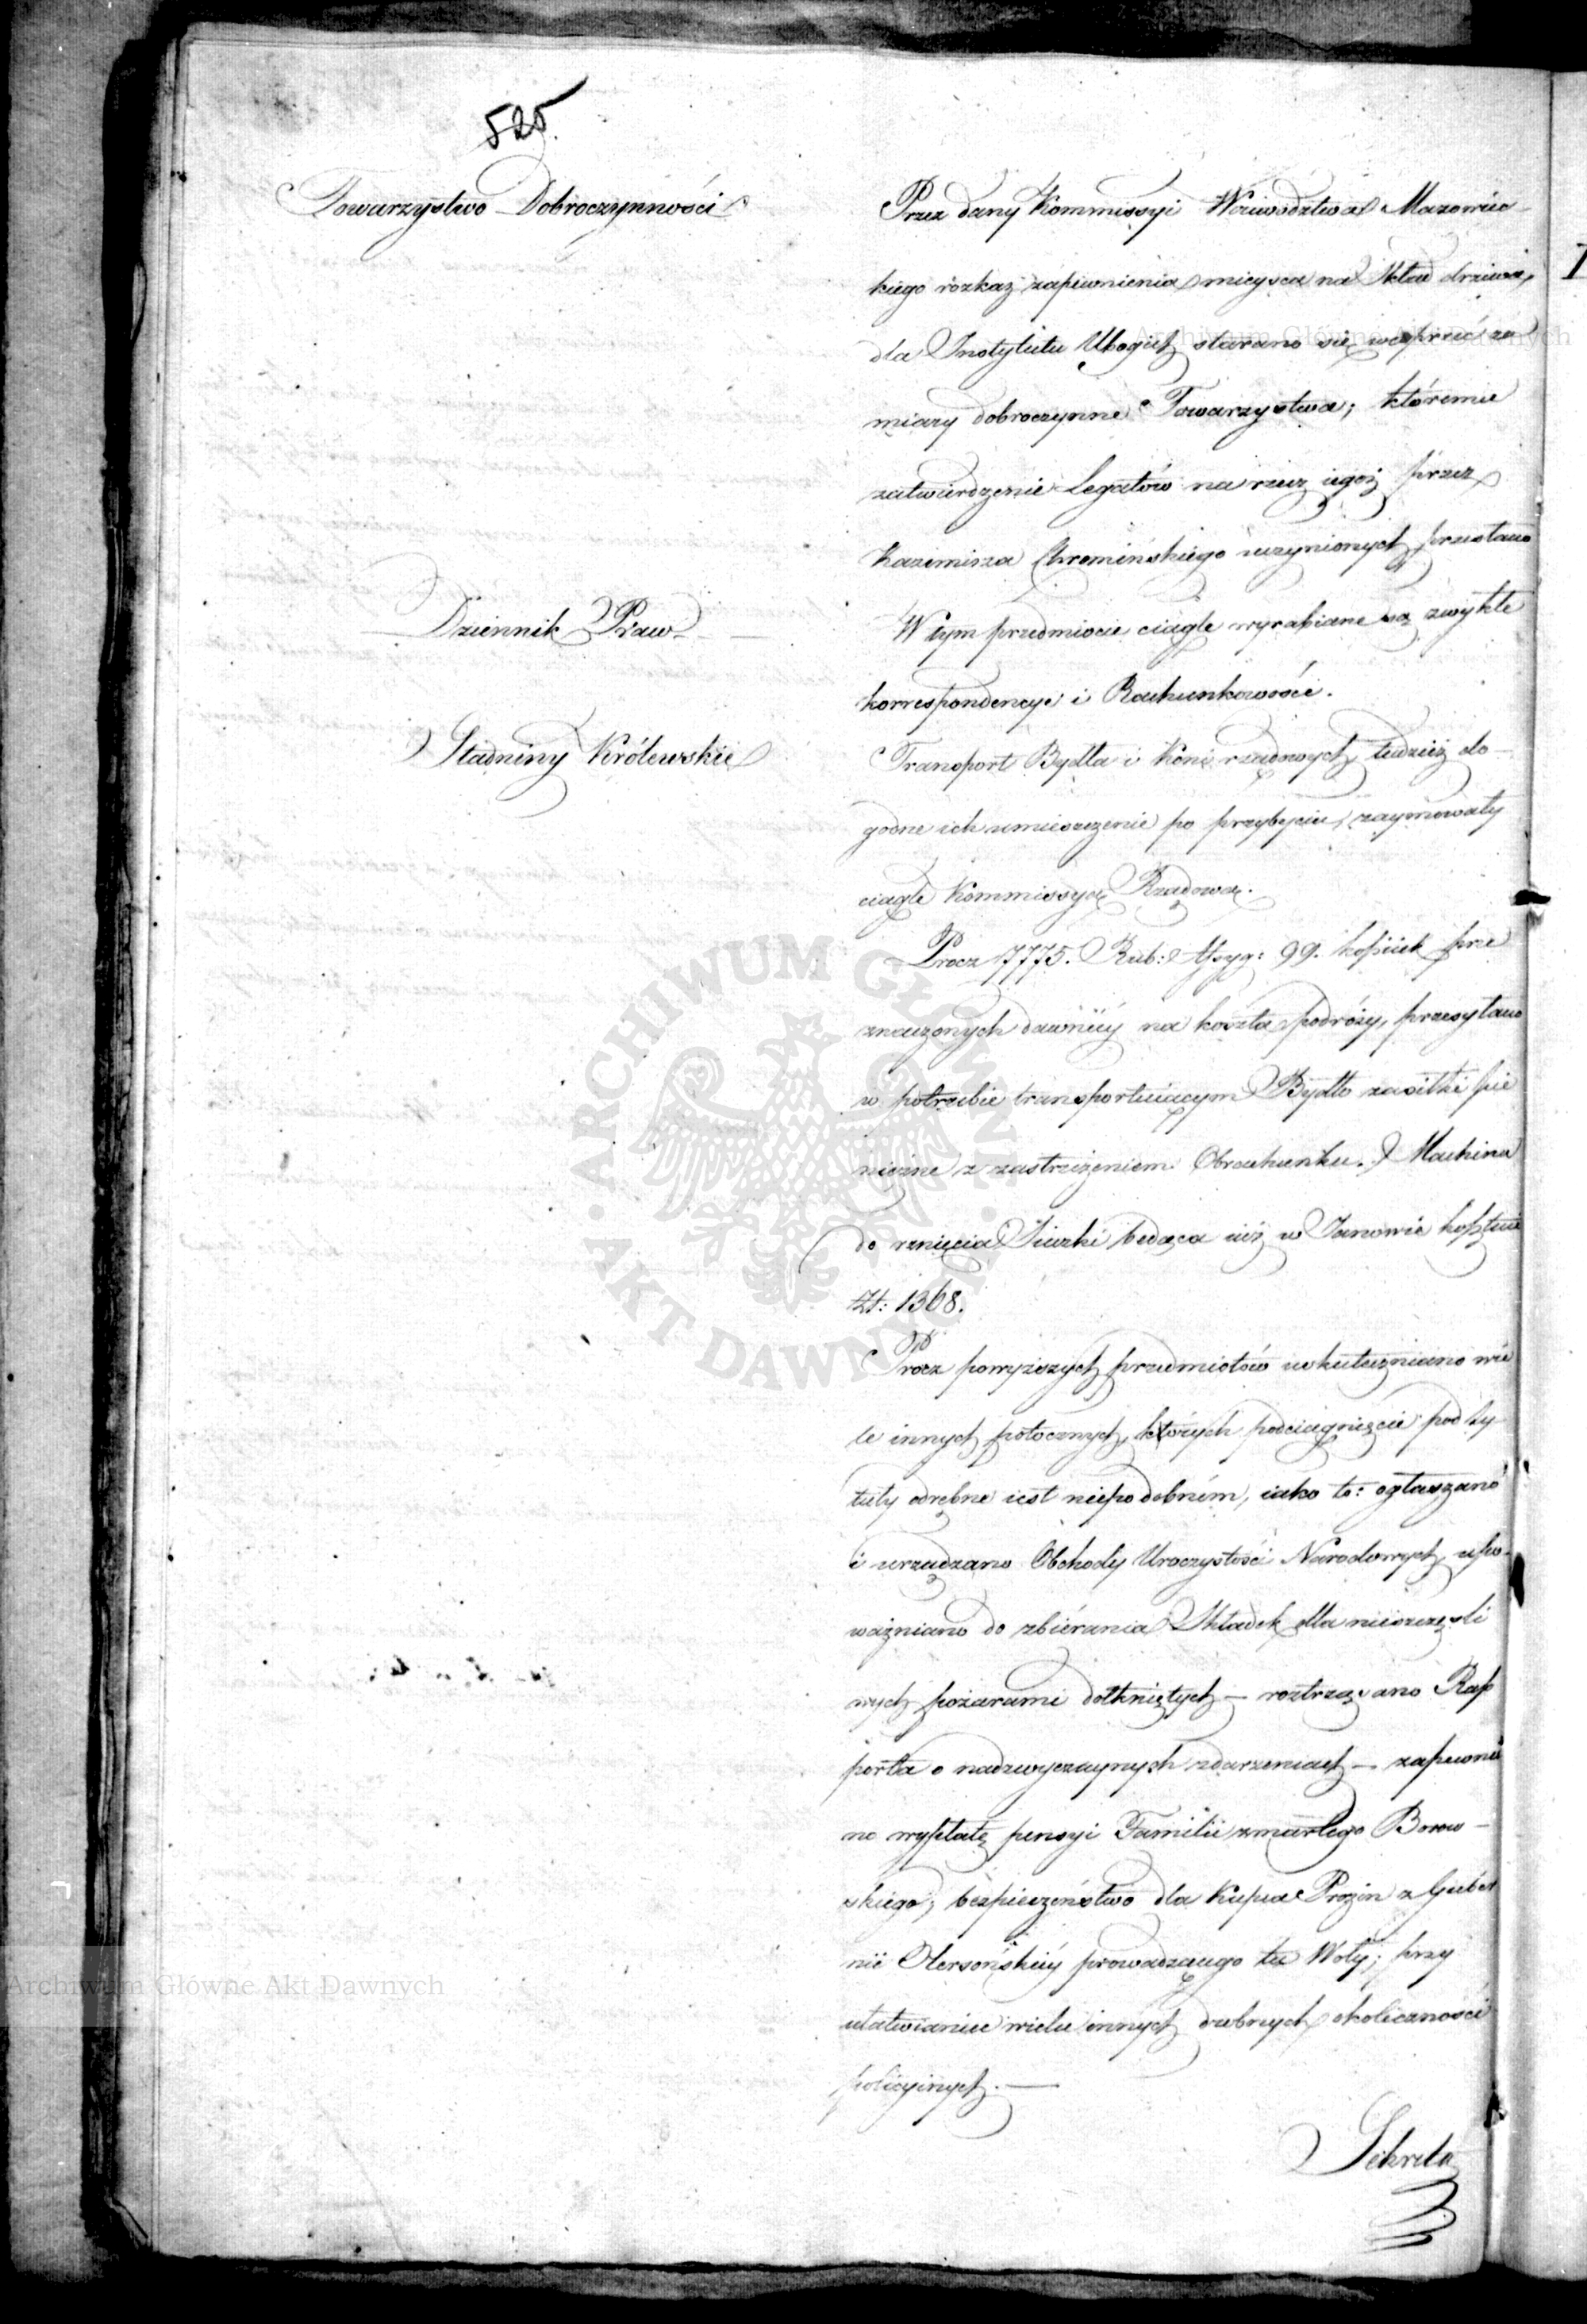 525.
Towarzystwo Dobroczynności
Przez dany Kommissyi Woiewództwa Mazowiec-
kiego rozkaz zapewnienia mieysca na Skład drzewa,
dla Instytutu Ubogich starano się wesprzeć za
miary dobroczynne Towarzystwa; któremu
zatwierdzenie Legatów na rzecz iegoż przez
Kazimirza Chromińskiego uczynionych przesłano
Dziennik Praw
W tym przedmiocie ciągle wyrabiane są zwykłe
korrespondencye i Rachunkowości.
Stadniny Królewskie
Transport Bydła i Koni rządowych, tudzież do-
godne ich umieszczenie po przybyciu, zaymowały
ciągle Kommissyą Rządową.
Procz 7775. Rub: Assyg: 99. kopiiek prze
znaczonych dawniéy na koszta podróży, przesyłano
w potrzebie transportuiącym Bydło zasiłki pie
niężne z zastrzeżeniem Obrachunku. Machina
do rznięcia Sieczki będąca iuż w Janowie kosztuie
Zł: 1368.
Procz powyższych przedmiotów uskuteczniano wie
le innych potocznych, których podciągnięcie pod ty
tuły odrębne iest niepodobném, iako to: ogłaszano
i urządzano Obchody Uroczystości Narodowych, upo-
ważniano do zbiérania Składek dla nieszczęśli
wych pożarami dotkniętych — roztrząsano Rap
porta o nadzwyczaynych zdarzeniach — zapewnio
no wypłatę pensyi Familii zmarłego Borow-
skiego; bezpieczeństwo dla Kupca Prozin z Guber
nii Chersońskiéy prowadzącego tu Woły; przy
ułatwianiu wielu innych drobnych okoliczności
policyinych. —
Sekreta
Archiwum Główne Akt Dawnych
Archiwum Główne Akt Dawnych
ARCHIWUM GŁÓWNE AKT DAWNYCH